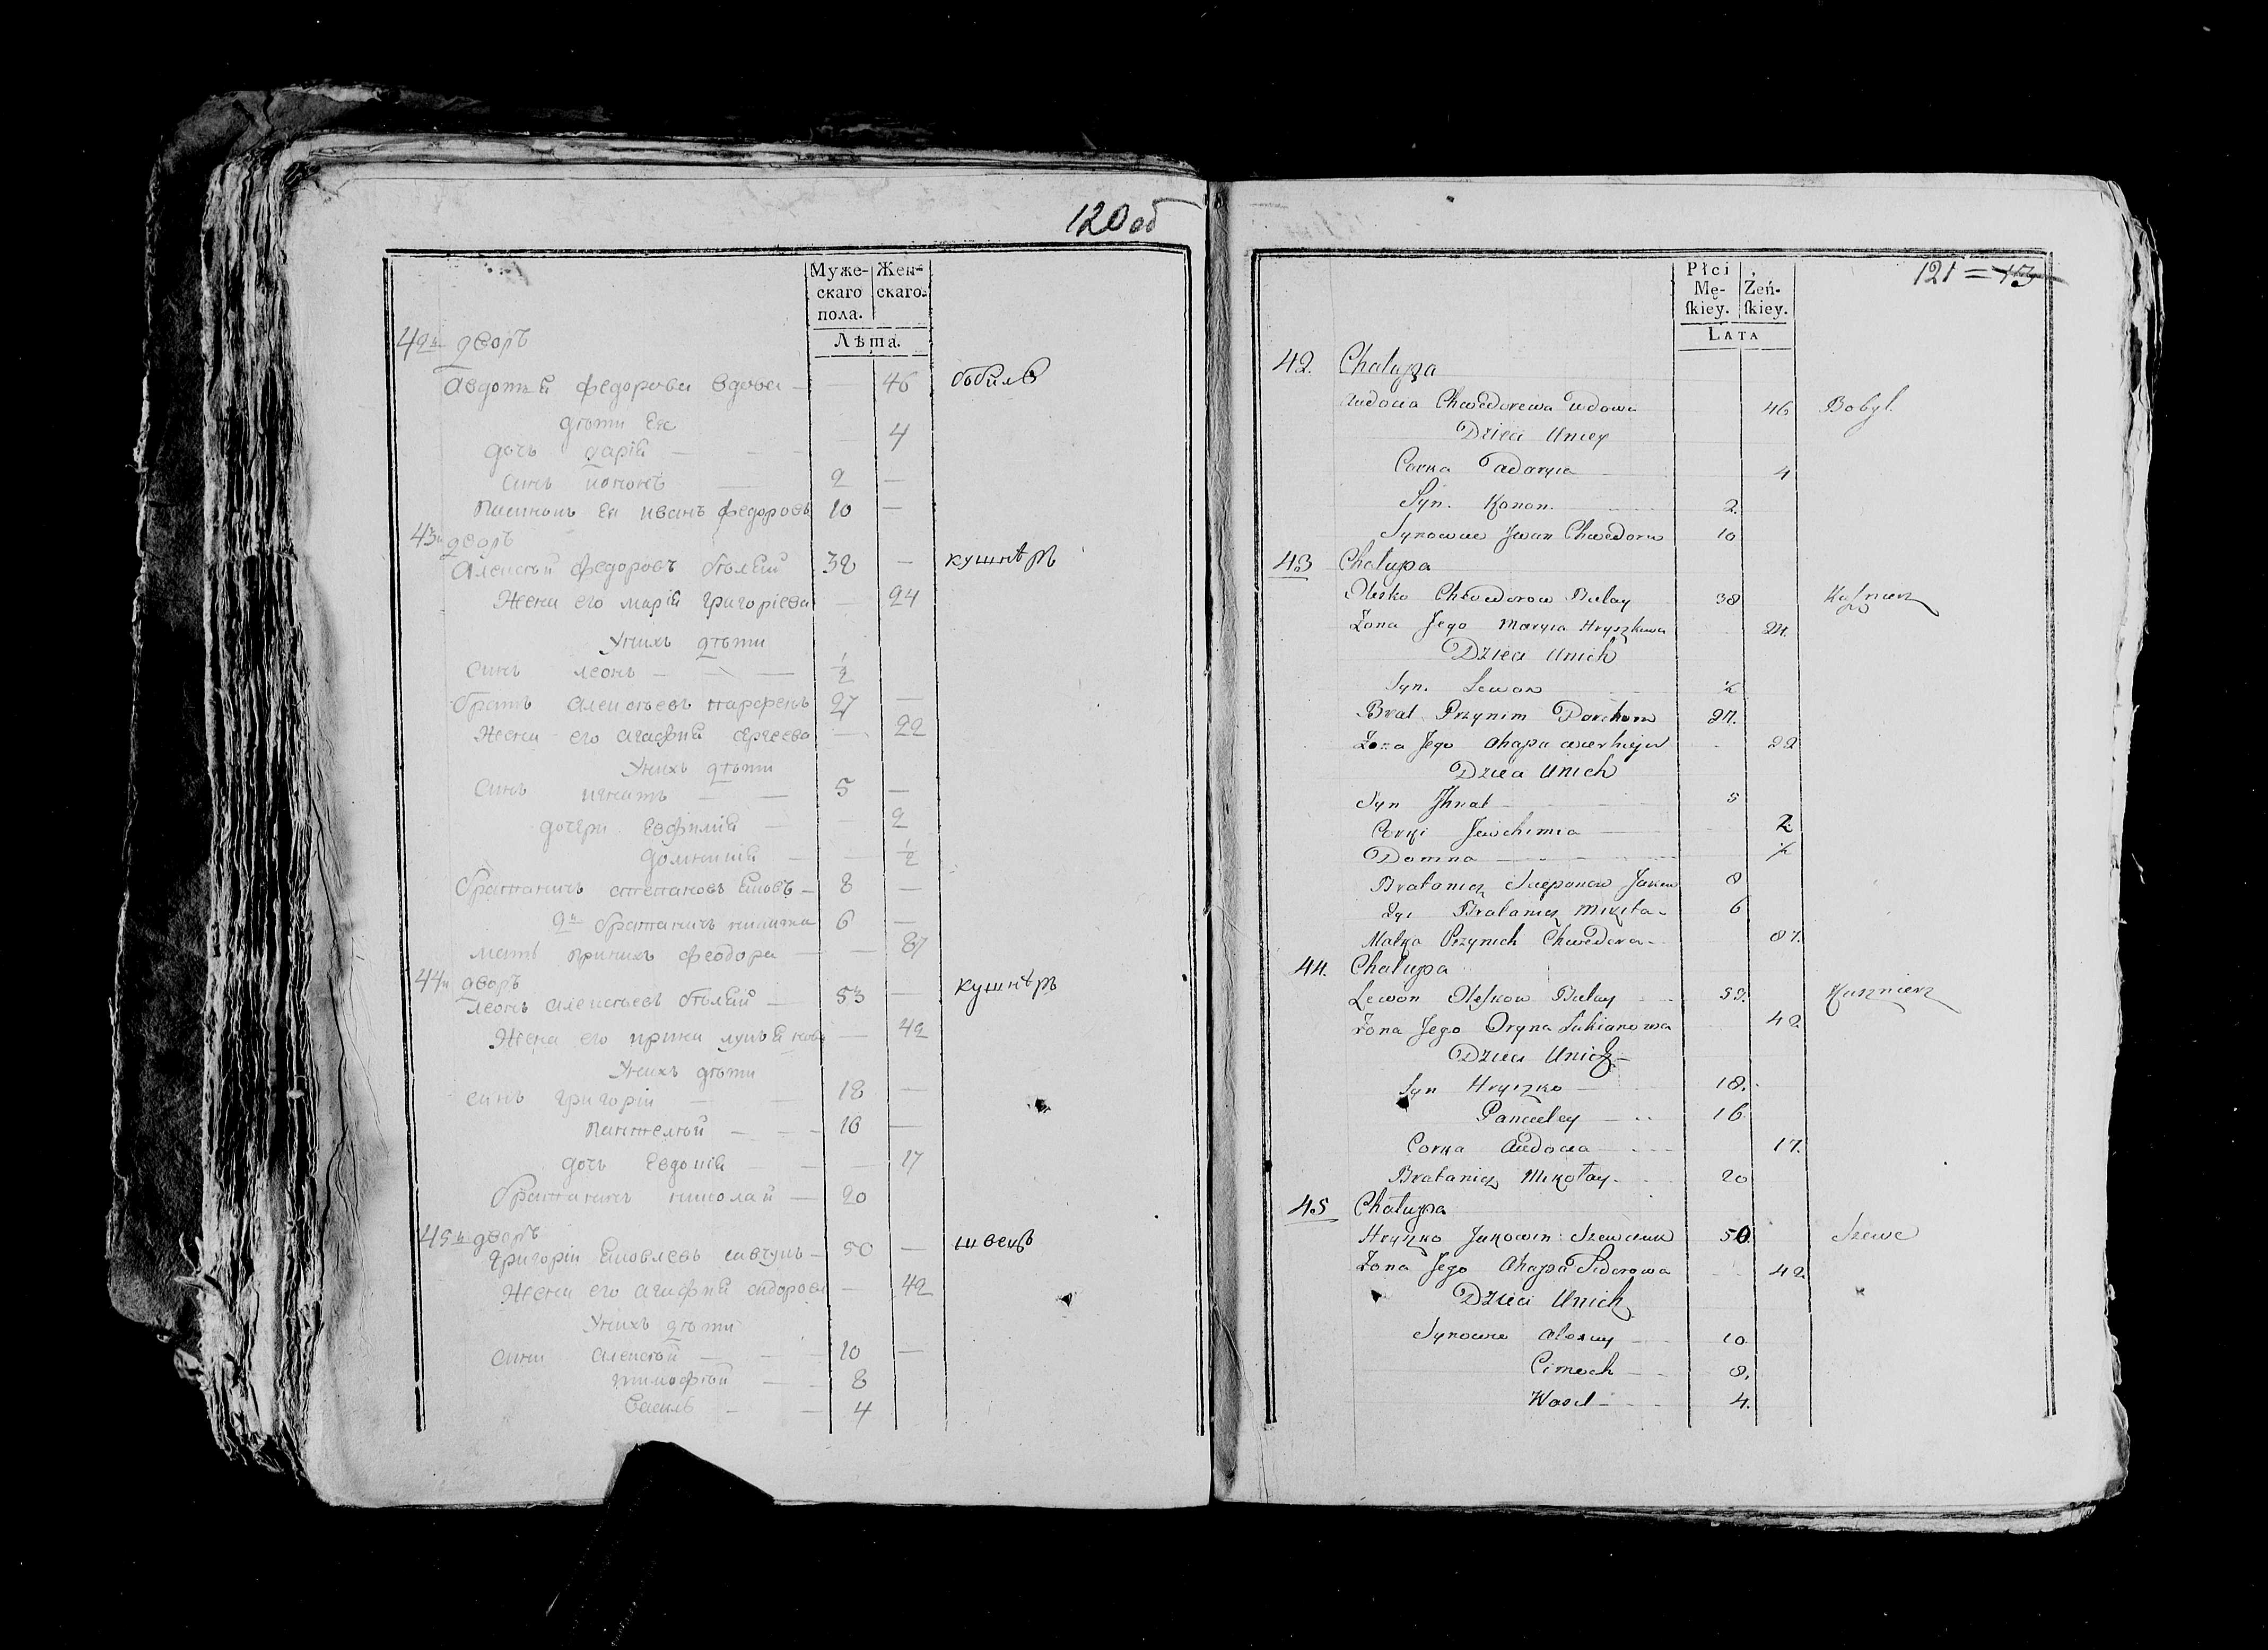 120 об
Муже- Жен-
скаго скаго.
пола.
Лѣта.
42й дворъ
Авдотъя федорова вдова — — 46 бобиль
дѣти Ея
дочь дария — — 4
синъ кононъ — 2 —
Пасинокъ Ея иванъ федоровъ 10 —
43й дворъ
Алексѣй федоровъ бѣлый 38 — кушнѣръ
Жена его мария григориева — 24
Унихъ дѣти
синъ леонъ — 1/2
братъ алексѣевъ парфенъ 27 —
Жена его агафия сергеева — 22
Унихъ дѣти
Синъ игнатъ — 5 —
дочери Евфимия — — 2
домникия — — 1/2
братаничъ степановъ яковъ — 8 —
2й братаничъ никита 6 —
мать принихъ феодора — — 87
44й дворъ
леонъ алексѣевъ бѣлый — 53 — кушнѣръ
Жена его ирина лукъянова — 42
Унихъ дѣти
синъ григорий — 18 —
Пантелѣй — 16 —
дочь Евдокия — — 17
братаничъ николай — 20
45й дворъ
григорий яковлевъ шевчукъ — 50 — швецъ
Жена его агафия сидорова — 42
Унихъ дѣти
сини алексѣй — 10 —
тимофѣй — 8
василь — 4
121 = 13
Płci
Mę- Żeń-
ſkiey. ſkiey.
Lata
42. Chałupa
Audocia Chwedorowa wdowa 46 Bobyl.
Dzieci Uniey
Corka Dadoryia 4
Syn. Konon. 2.
Synowiec Jwan Chwedorow 10
43 Chałupa
Oleśko Chwedorow Biełay 38 Kuśnierz
Żona Jego Maryia Hryszkowa 24.
Dzieci Unich
Syn. Lewon 1/2
Brat Przynim Parchom 27.
Żona Jego Ahapa Awerhiejew 22
Dzieci Unich
Syn Jhnat 5
Corki Jewchimia 2.
Domna 1/2
Bratanicz Sciepanow Jakow 8
2gi Bratanicz Mikita 6
Matka Przynich Chwedora 87.
44. Chałupa
Lewon Oleśkow Biełay 53. Kusznierz
Żona Jego Oryna Łukianowa 42
Dzieci Unich
Syn Hryszko 18.
Pancieley 16
Corka Audocia 17.
Bratanicz Mikołay 20
45 Chałupa
Hryszko Jakowin: Szewczuk 50. Szewc
Żona Jego Ahapa Sidorowa 42
Dzieci Unich
Synowie Alexiey 10
Cimoch 8.
Wasil 4.